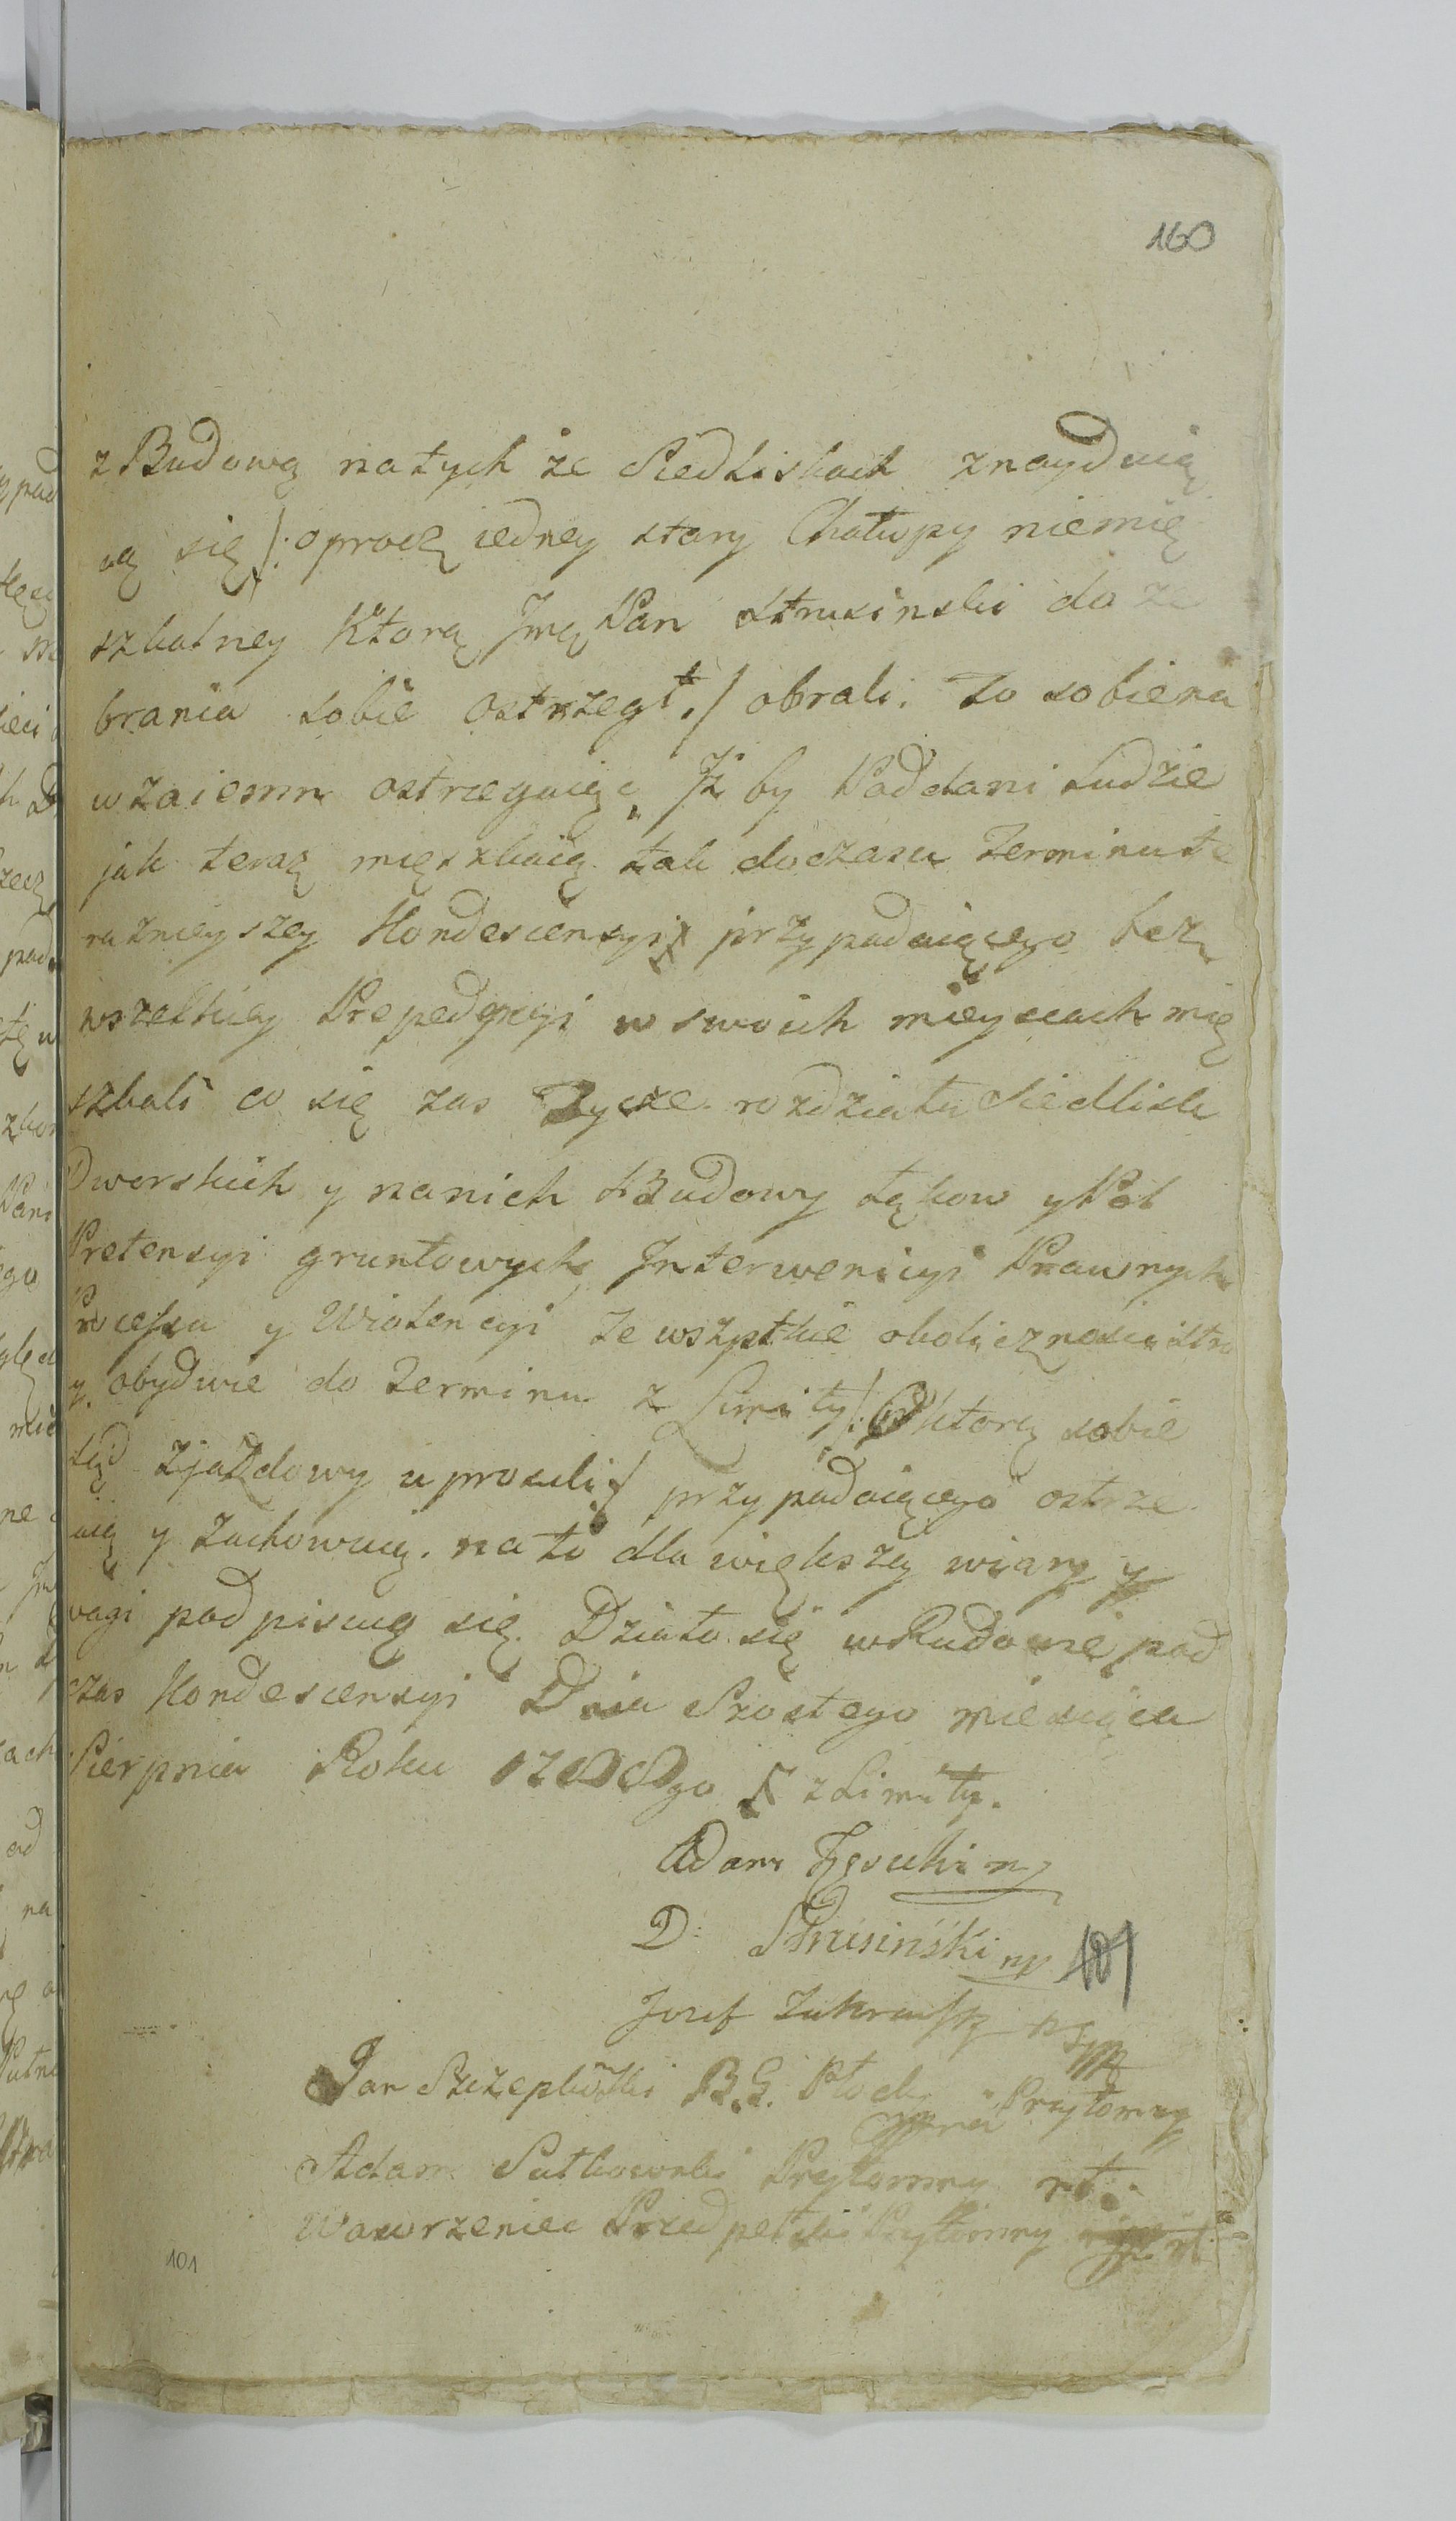 160
z Budową na tych że Siedliskach znayduią
cą się /: oprocz iedney stary Chałupy niemię
szkalney Ktorą Jmę Pan Strusinski do ze
brania sobie ostrzegł :/ obrali. To sobie na
wzaiemn ostrzegaiąc Jż by Poddani Ludzie
jak teraz mięszkaią tak do czasu Terminu te
raznieyszey Kondescensyi przypadaiącego bez
wszelkiey Prepedycyi w swoich mieyscach mię
szkali co się zas Tycze rozdziału Siedlisk
Dworskich y na nich Budowy Łąkow y Pol
Pretensyi gruntowych Interwenicyi Prawnych
Processu y Wiolencyi te wszystkie okoliczności Stro
y obydwie do Terminu z Limity /: O ktorą sobie
Sąd zjazdowy uprosili :/ przypadaiącego ostrze
aią y zachowuią. na to dla większey wiary y
wagi podpisuią się. Działo się w Rudowie pod
czas Kondescensyi Dnia Szostego miesiąca
Sierpnia Roku 1788go z Limity.
Adam
D: Strusiński mp
101
Jozef
Jan B. G. Przytomny
Adam Sutkowski Przytomny
Wawrzeniec Przedpełski Przytomny
101